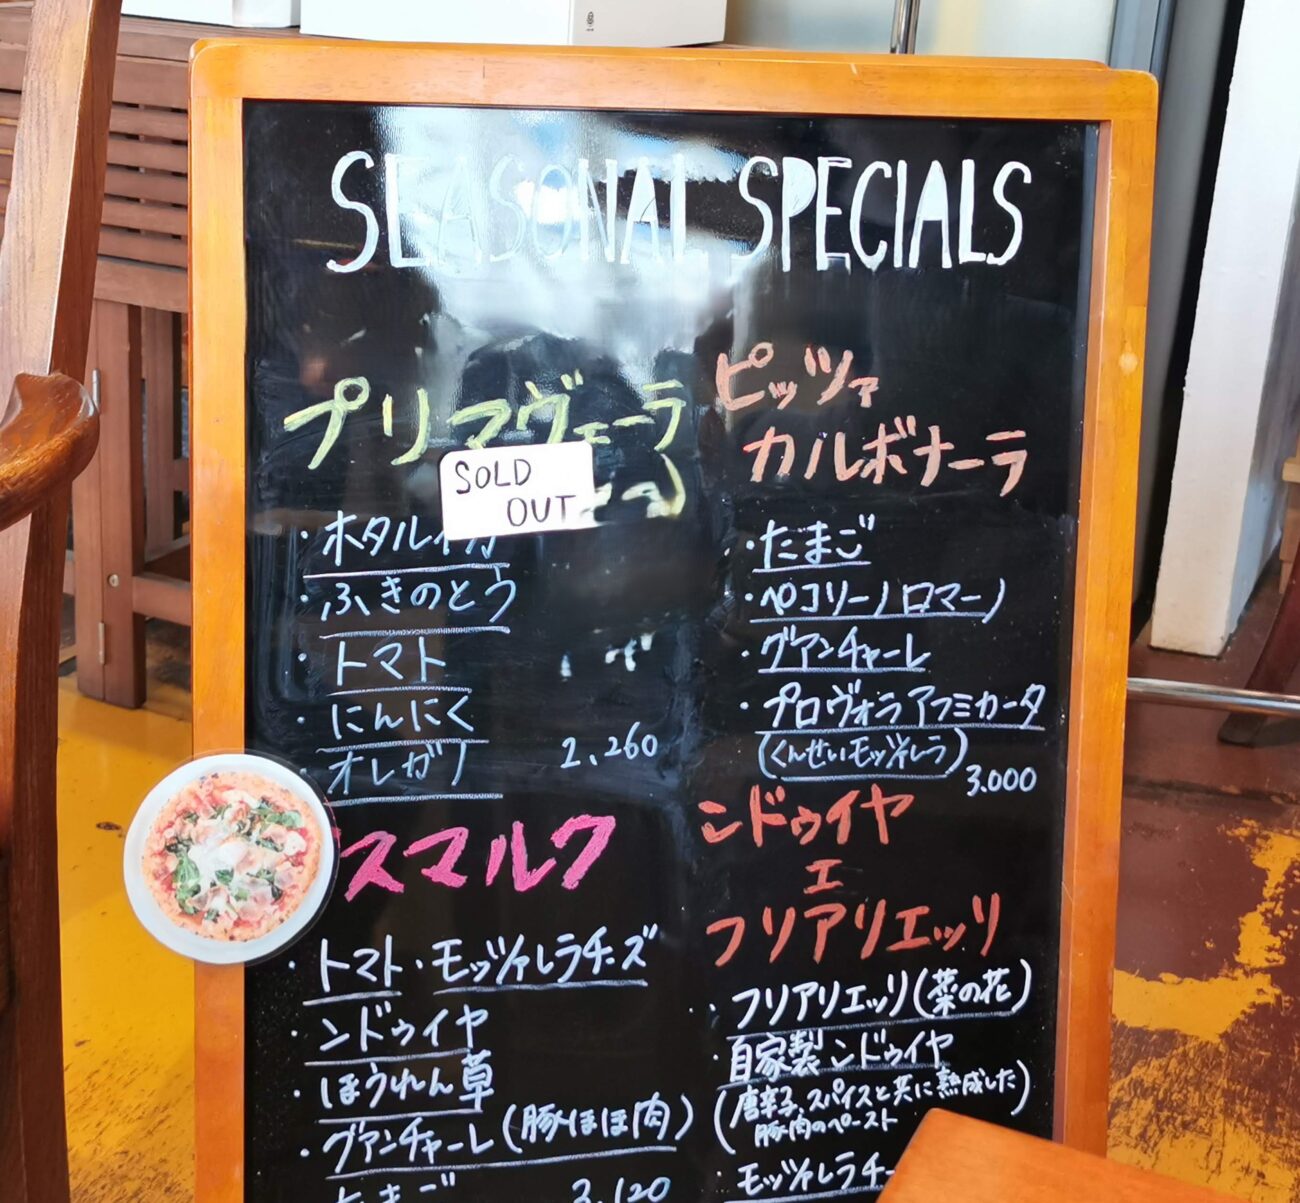 SEASONAL SPECIALS
プリマヴェーラ
SOLD OUT
・ホタルイカ
・ふきのとう
・トマト
・にんにく
・オレガノ 2,260
ピッツァ
カルボナーラ
・たまご
・ペコリーノロマーノ
・グアンチャーレ
・プロヴォラアフミカータ
(くんせいモッツァレラ)
3,000
スマルク
・トマト・モッツァレラチーズ
・ンドゥイヤ
・ほうれん草
・グアンチャーレ(豚ほほ肉)
たまご 3,120
ンドゥイヤ
エ
フリアリエッリ
・フリアリエッリ(菜の花)
・自家製ンドゥイヤ
(唐辛子、スパイスと共に熟成した
豚肉のペースト)
・モッツァレラチー